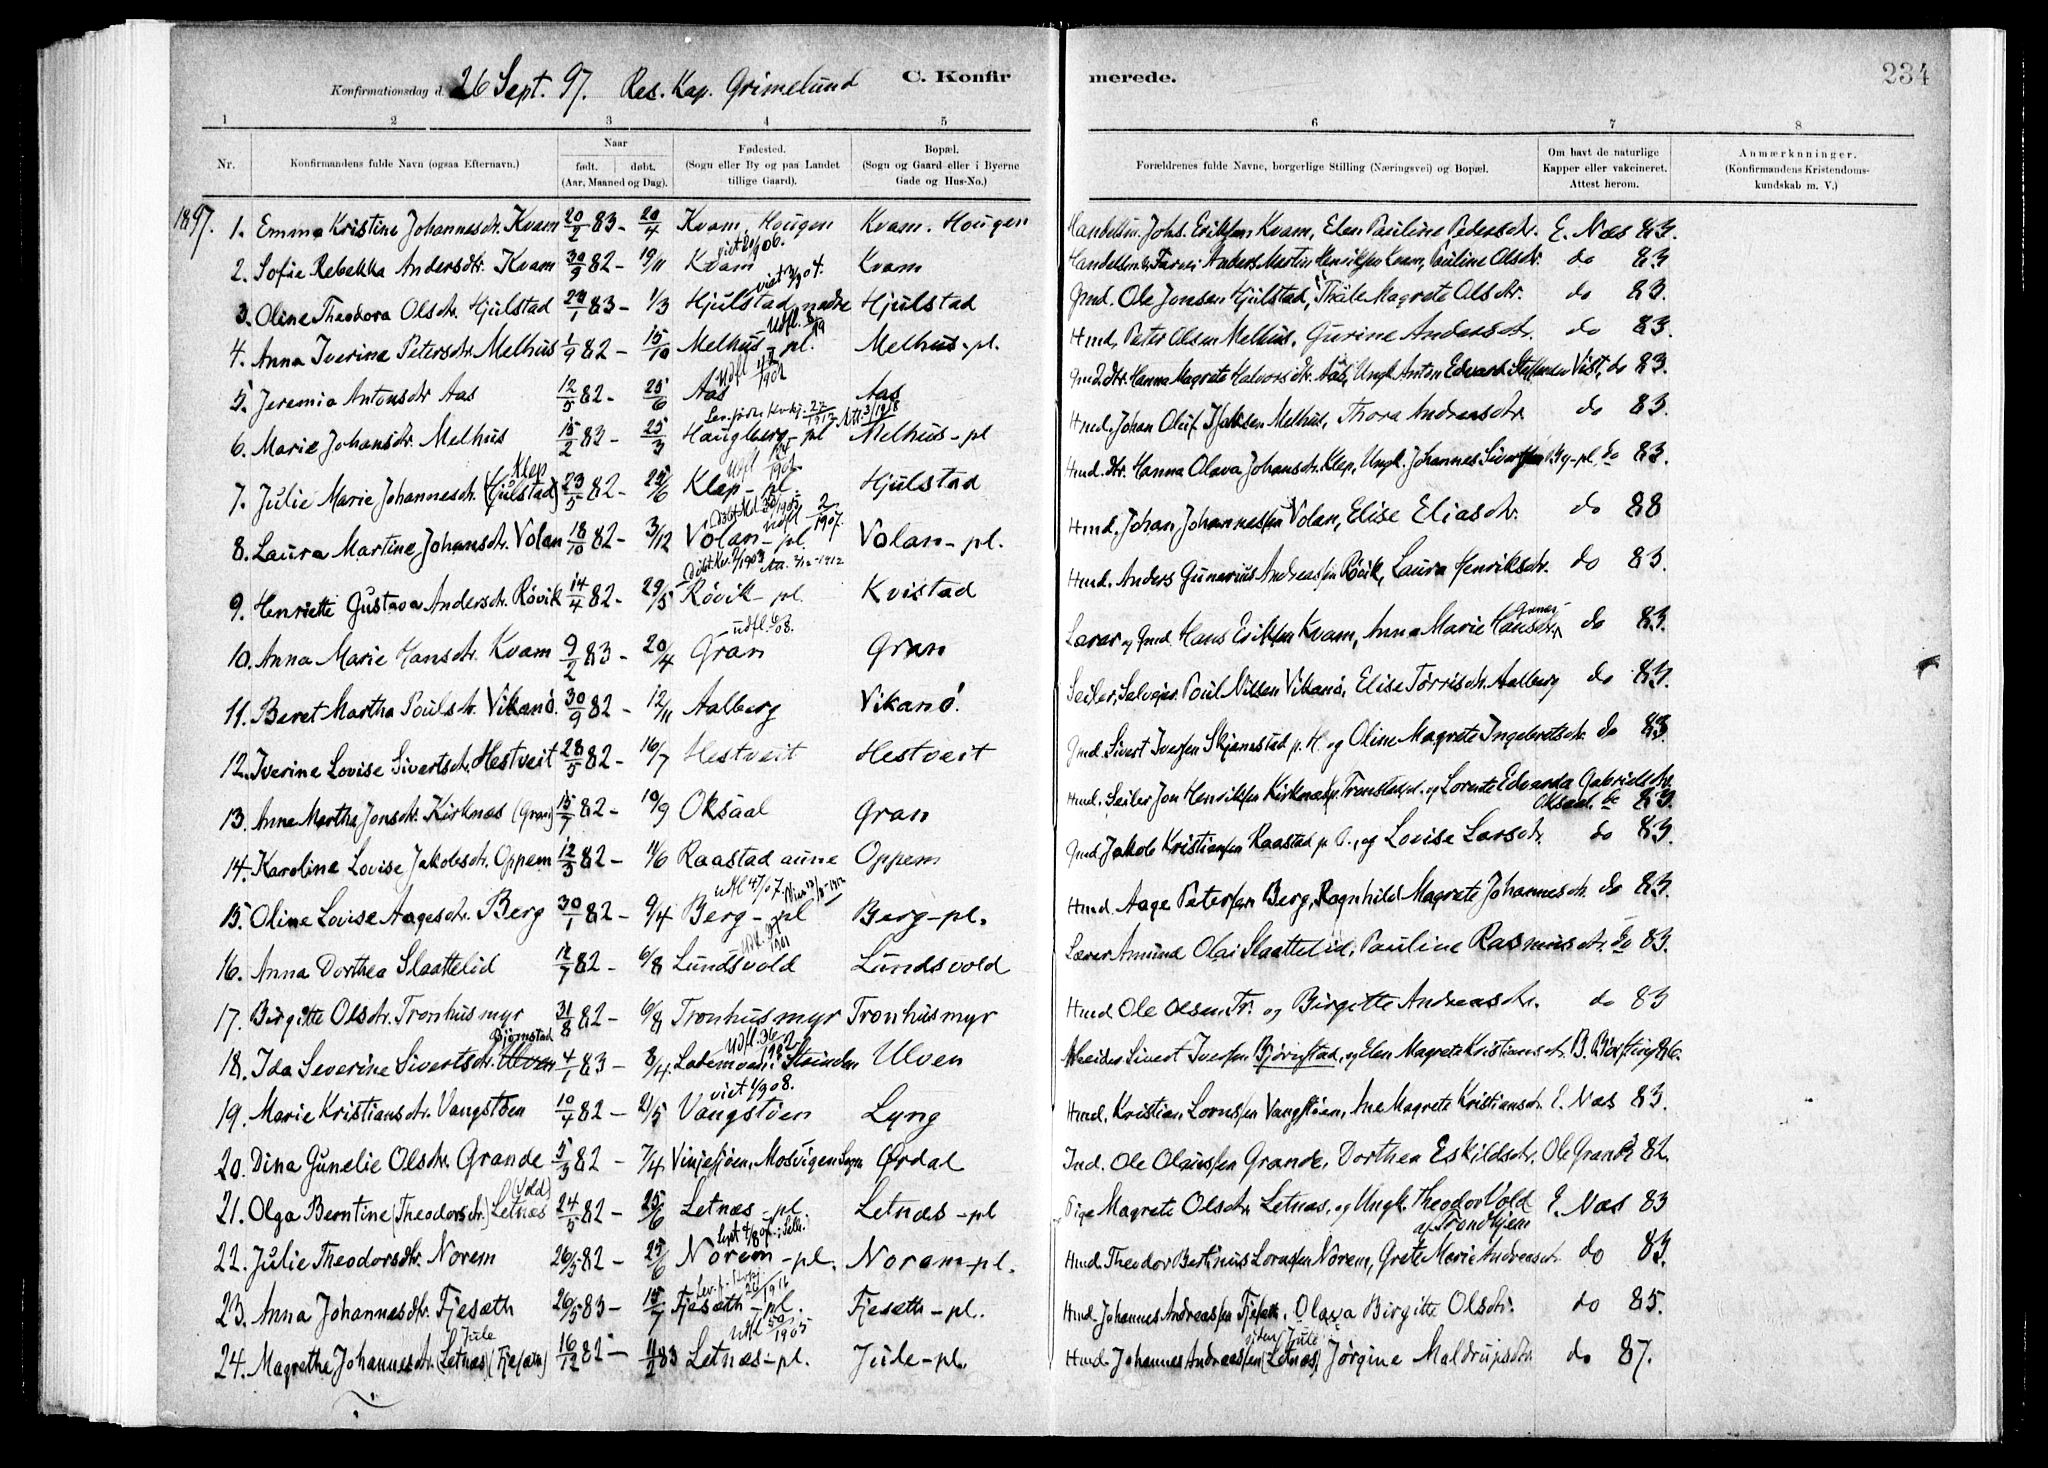 Konfirmationsdag d. 26 Sept. 97. Res. Kap. Grimelund C. Konfir merede. 234
1 2 3 4 5 6 7 8
Nr. Konfirmandens fulde Navn (ogsaa Efternavn.) Naar født. døbt. (Aar, Maaned og Dag). Fødested. (Sogn eller By og paa Landet tillige Gaard). Bopæl. (Sogn og Gaard eller i Byerne Gade og Hus-No.) Forældrenes fulde Navne, borgerlige Stilling (Næringsvei) og Bopæl. Om havt de naturlige Kapper eller vakcineret. Attest herom. Anmærknninger. (Konfirmandens Kristendoms-kundskab m. V.)
1897. 1. Emma Kristine Johannesdr. Kvam 20/2 83 - 29/4 Kvam, Hougen Kvam. Hougen Johs. Eriksen Kvam, Elen Pauline Pedersdr. E. Næs 83.
2. Sofie Rebekka Andersdtr. Kvam 30/9 82 - 19/11 Kvam Kvam Anders Martin Henriksen Kvam, Pauline Olsdr. do 83
3. Oline Theodora Olsdr. Hjulstad 83 - 1/3 Hjulstad nedre Hjulstad Gmd. Ole Jonsen Hjulstad, Magrete Olsdr. do 83.
4. Anna Iverine Petersdr. Melhus 1/9 82 - 15/10 Melhus - pl. Melhus - pl. Hmd. Peter Olsen Melhus, Gurine Andersdr. do 83.
5. Jeremia Antonsdr Aas 12/5 82 - 25/6 Aas Aas Gmd. dtr. Hanna Magrete Halvorsdtr. Aas, Ungk. Anton Edvard Steffensen Vist, do 83.
6. Marie Johansdr. Melhus 15/2 83 - 25/3 Haugberg - pl Melhus - pl Hmd. Johan Oluf Isaksen Melhus, Thora Andreasdr. do 83.
7. Julie Marie Johannesdr. (Hjulstad) Klep 23/5 82 - 25/6 Klep - pl. Hjulstad Hmd. dtr. Hanna Olava Johansdr. Klep, Ungk. Johannes Sivertsen By-pl. do 83.
8. Laura Martine Johansdr. Volan 18/10 82 - 3/12 Volan - pl. Volan - pl. Hmd. Johan Johannessen Volan, Elise Eliasdr. do 88
9. Henriette Gustava Andersdr. Røvik 14/4 82 - 29/5 Røvik - pl. Kvistad Hmd. Anders Gunerius Andreassen Røvik, Laura Henriksdr. do 83.
10. Anna Marie Hansdr. Kvam 9/2 83 - 20/4 Gran Gran Lærer og Gmd. Hans Eriksen Kvam, Anna Marie Hansdr. do 83.
11. Beret Martha Poulsdr. Vikanø. 30/9 82 - 12/11 Aalberg Vikanø. Seiler, Selveier Poul Nilsen Vikanø, Elise Tørrisdr. Aalberg do 83.
12. Iverine Lovise Sivertsdr. Hestveit 28/5 82 - 16/7 Hestveit Hestveit Gmd. Sivert Iversen Skjemstad p. H. og Oline Magrete Ingebretsdr. do 83
13. Anna Martha Jonsdr. Kirknæs (Gran) 15/7 82 - 10/9 Oksaal Gran Hmd. Seiler Jon Henriksen Kirknæs, og Lornte Edvarda Gabrielsdr. Oksaal do 83.
14. Karoline Lovise Jakobsdr. Oppem 12/3 82 - 11/6 Raastad aune Oppem Gmd. Jakob Kristiansen Raastad p. O., og Lovise Larsdr. do 83.
15. Oline Lovise Aagesdr. Berg 30/1 82 - 9/4 Berg - pl Berg - pl. Hmd. Aage Petersen Berg, Ragnhild Magrete Johannesdr. do 83.
16. Anna Dorthea Slaattelid 12/7 82 - 6/8 Lundsvold Lundsvold Lærer Amund Olai Slaattelid, Pauline Rasmusdr. do 83.
17. Birgitte Olsdr. Tronhusmyr 31/8 82 - 6/8 Tronhusmyr Tronhusmyr Hmd Ole Olsen Tr. og Birgitte Andreasdr. do 83
18. Ida Severine Sivertsdr. Ulven Bjørnstad 4/1 83 - 8/4 Ulven Arbeider Sivert Iversen Bjørnstad, og Elen Magrete Kristiansdr. B. 86.
19. Marie Kristiansdr. Vangstøen 10/4 82 - 21/5 Vangstöen viet 1/9 08. Lyng Hmd. Kristian Lorntsen Vangstöen, Ane Magrete Kristiansdr. E. Næs 83.
20. Dina Gunelie Olsdr. Grande 5/3 82 - 7/4 Vinjesjøen, Mosvigen Sogn Ørdal Ind. Ole Olaussen Grande, Dorthea Eskildsdr. Ole Grande 82.
21. Olga Berntine (Theodorsdr.) Letnæs (Vold) 24/5 82 - 25/6 Letnæs - pl. Letnæs - pl Pige Magrete Olsdr. Letnæs, og Ungk. Theodor Vold af Trondhjem E. Næs 83
22. Julie Theodorsdtr. Norem 26/5 82 - 25/6 Norem - pl. Norem - pl. Hmd. Theodor Bertinus Lorntsen Norem, Grete Marie Andreasdr. do 83.
23. Anna Johannesdtr. Fjesæth 26/5 83 - 15/7 Fjesæth - pl. Fjesæth - pl. Hmd. Johannes Andreassen Fjesæth, Olava Birgitte Olsdr. do 85.
24. Magrethe Johannesdr. (Letnæs) Jule (Fjesæth) 16/12 82 - 11/2 83 Letnæs - pl. Jule - pl. Hmd. Johannes Andreassen (Letnæs) siden Jule, Jørgine Maldrupsdr. do 87.